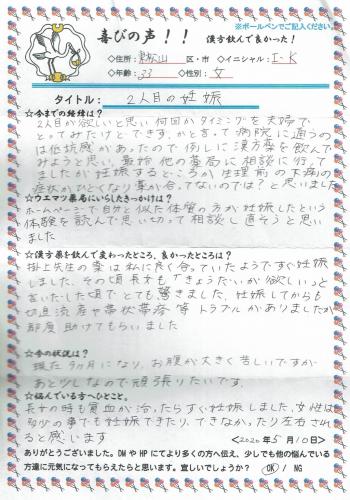 ※ボールペンでご記入ください。
喜びの声！！ 漢方飲んで良かった！
◇住所： 東松山 区・市 ◇イニシャル： I-K
◇年齢： 33 ◇性別： 女
タイトル： 2人目の妊娠
☆今までの経緯は？
2人目が欲しいと思い何回かタイミングを夫婦で
とってみたけどできず、かと言って病院に通うのに
は抵抗があったので試しに漢方薬を飲んで
みようと思い、最初他の薬局に相談に行って
ましたが妊娠するどころか生理前の下痢の
症状がひどくなり薬が合ってないのでは？と思いました
☆ウエマツ薬局にいらしたきっかけは？
ホームページで自分と似た体質の方が妊娠したという
体験を読んで思い切って相談し直そうと思い
ました
☆漢方薬を飲んで変わったところ、良かったところは？
掛上先生の薬は私に良く合っていたようですぐ妊娠
しました。その頃長女も「きょうだいが欲しい」っと
言いだした頃でとても驚きました。妊娠してからも
切迫流産や帯状疱疹等トラブルがありましたが
都度助けてもらいました
☆今の状況は？
現在9ヶ月になり、お腹が大きく苦しいですが
あと少しなので頑張りたいです。
☆悩んでいる方へひとこと。
長女の時も貧血が治ったらすぐ妊娠しました、女性は
多少の事でも妊娠できたり、できなかったり左右され
ると感じます
<2020年5月10日>
ありがとうございました。DMやHPにてより多くの方へ伝え、少しでも他の悩んでいる
方達に元気になってもらえたらと思います。宜しいでしょうか？ OK / NG